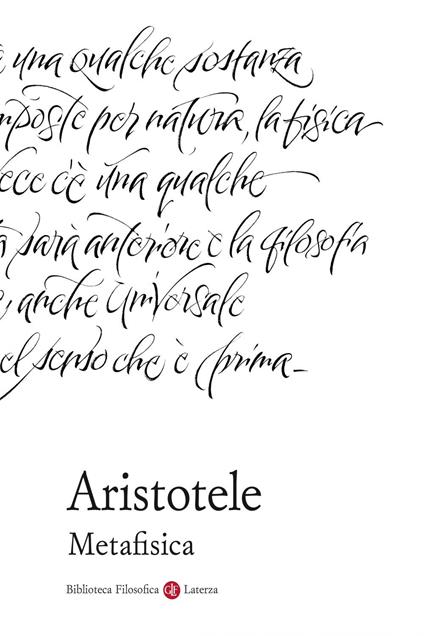 è una qualche sostanza
mposte per natura, la fisica
ece c'è una qualche
à sarà anteriore e la filosofia
e, anche universale
el senso che è prima_
Aristotele
Metafisica
Biblioteca Filosofica GLF Laterza